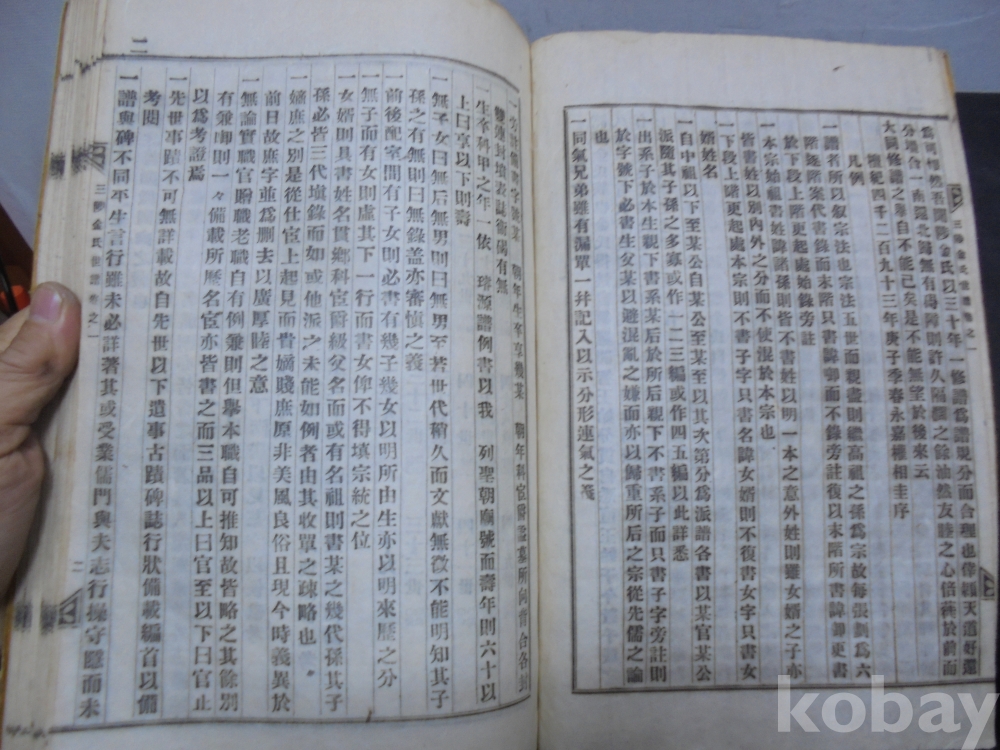 三陟金氏世譜卷之一
大同修譜之擧自不能已矣是不能無望於後來云
檀紀四千二百九十三年庚子季春永嘉權相圭序
凡例
一譜名所以叙宗法也宗法五世而親盡則繼高祖之孫爲宗故每張劃爲六
階逐階案代書錄而末階只書諱御而不錄旁註復以末階所書諱御更書
於下段上階更起處始錄旁註
一本宗始祖書姓諱諸孫則皆不書姓以明一本之意外姓則雖女婿之子亦
皆書姓以別內外之分而不使混於本宗也
一下段上階更起處本宗則不書子字只書名諱女婿則不復書女字只書女
婿姓名
一自中祖以下至某公自某公至某至以其次第分爲派譜各書以某官某公
派隨其子孫之多寡或作一二三編或作四五編以此詳悉
一出系子於本親下書系某后於所后親下不書系子而只書子字旁註則
於字號下必書生父某以避混亂之嫌而亦以歸重所后之宗從先儒之論
也
一同氣兄弟雖有漏單一幷記入以示分形連氣之義
一生卒科甲之年一依 璿源譜例書以我 列聖朝廟號而壽年則六十以
上曰享以下則壽
一無子女曰無后無男則曰無男至若世代稍久而文獻無徵不能明知其子
孫之有無則曰無錄蓋亦審愼之義
一前後配室間有子女則必書有幾子幾女以明所由生亦以明來歷之分
一無子而有女則虛其下一行而書女俾不得填宗統之位
一女婿則具書姓名貫鄕科宦爵級父名而或有名祖則書某之幾代孫其子
孫必皆三代塡錄而如或他派之未能如例者由其收單之疎略也
一嫡庶之別是從仕宦上起見而貴嫡賤庶原非美風良俗且現今時義異於
前日故庶字並爲刪去以廣厚睦之意
一無論實職官贈職老職自有例兼則但擧本職自可推知故皆略之其餘別
有兼啣則一々備載所歷名宦亦皆書之而三品以上曰官至以下曰官止
以爲考證焉
一先世事蹟不可無詳載故自先世以下遺事古蹟碑誌行狀備載編首以備
考閱
一譜與碑不同平生言行雖未必詳著其或受業儒門與夫志行操守聽而未
三陟金氏世譜 卷之一
二
二
kobay